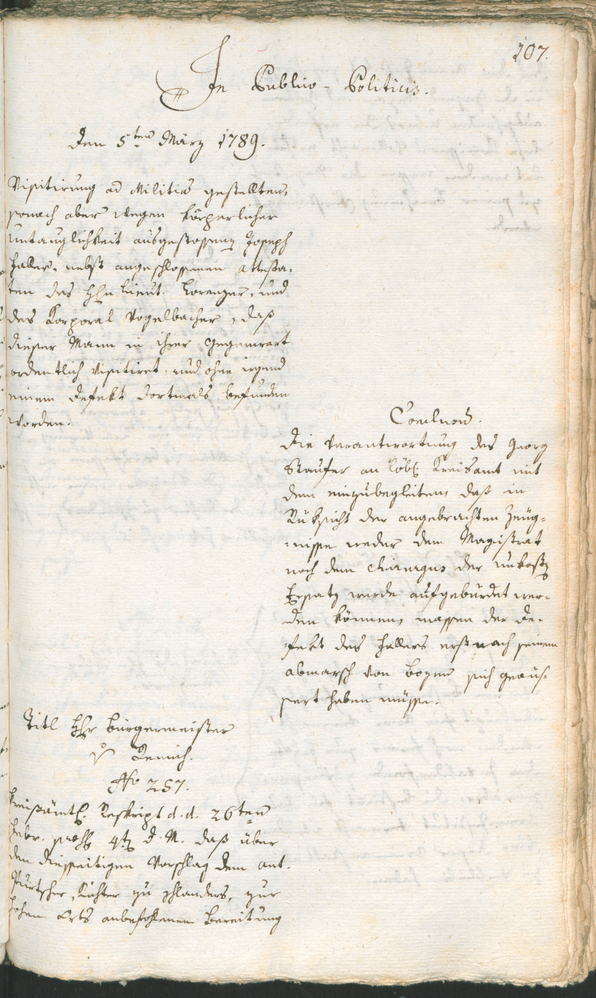 107.
In Publico-Politicis.
Den 5ten März 1789.
Visitirung ad Militiæ gestellten,
sonach aber wegen körperlicher
Untauglichkeit ausgestossenen Joseph
Hallers, nebst angeschlossenen Attesta-
ten des Hhn Lieut. Lorenzer, und
des Korporal Vogelbacher, daß
dieser Mann in ihrer Gegenwart
ordentlich visitiret, und ohne irgend
einem Defekt dortmals befunden
worden.
Conclusum.
Die Verantwortung des Georg
Staufer an löbl. Kreisamt mit
dem einzubegleiten, daß in
Rüksicht der angebrachten Zeug-
nisse weder dem Magistrat
noch dem Chirurgus der Unkosten
Ersatz werde aufgebürdet wer-
den können, massen der De-
fekt des Hallers erst nach seinem
Abmarsch von Bozen sich geäus-
sert haben müsse.
Titl Hhr Bürgermeister
v
No 257.
Kreisämtl. Reskript d.d. 26ten
Febr. 4t d. M. daß über
den diesseitigen Vorschlag dem Ant.
Purtscher, Richter zu Schlanders, zur
hohen Orts anbefohlenen Bereitung